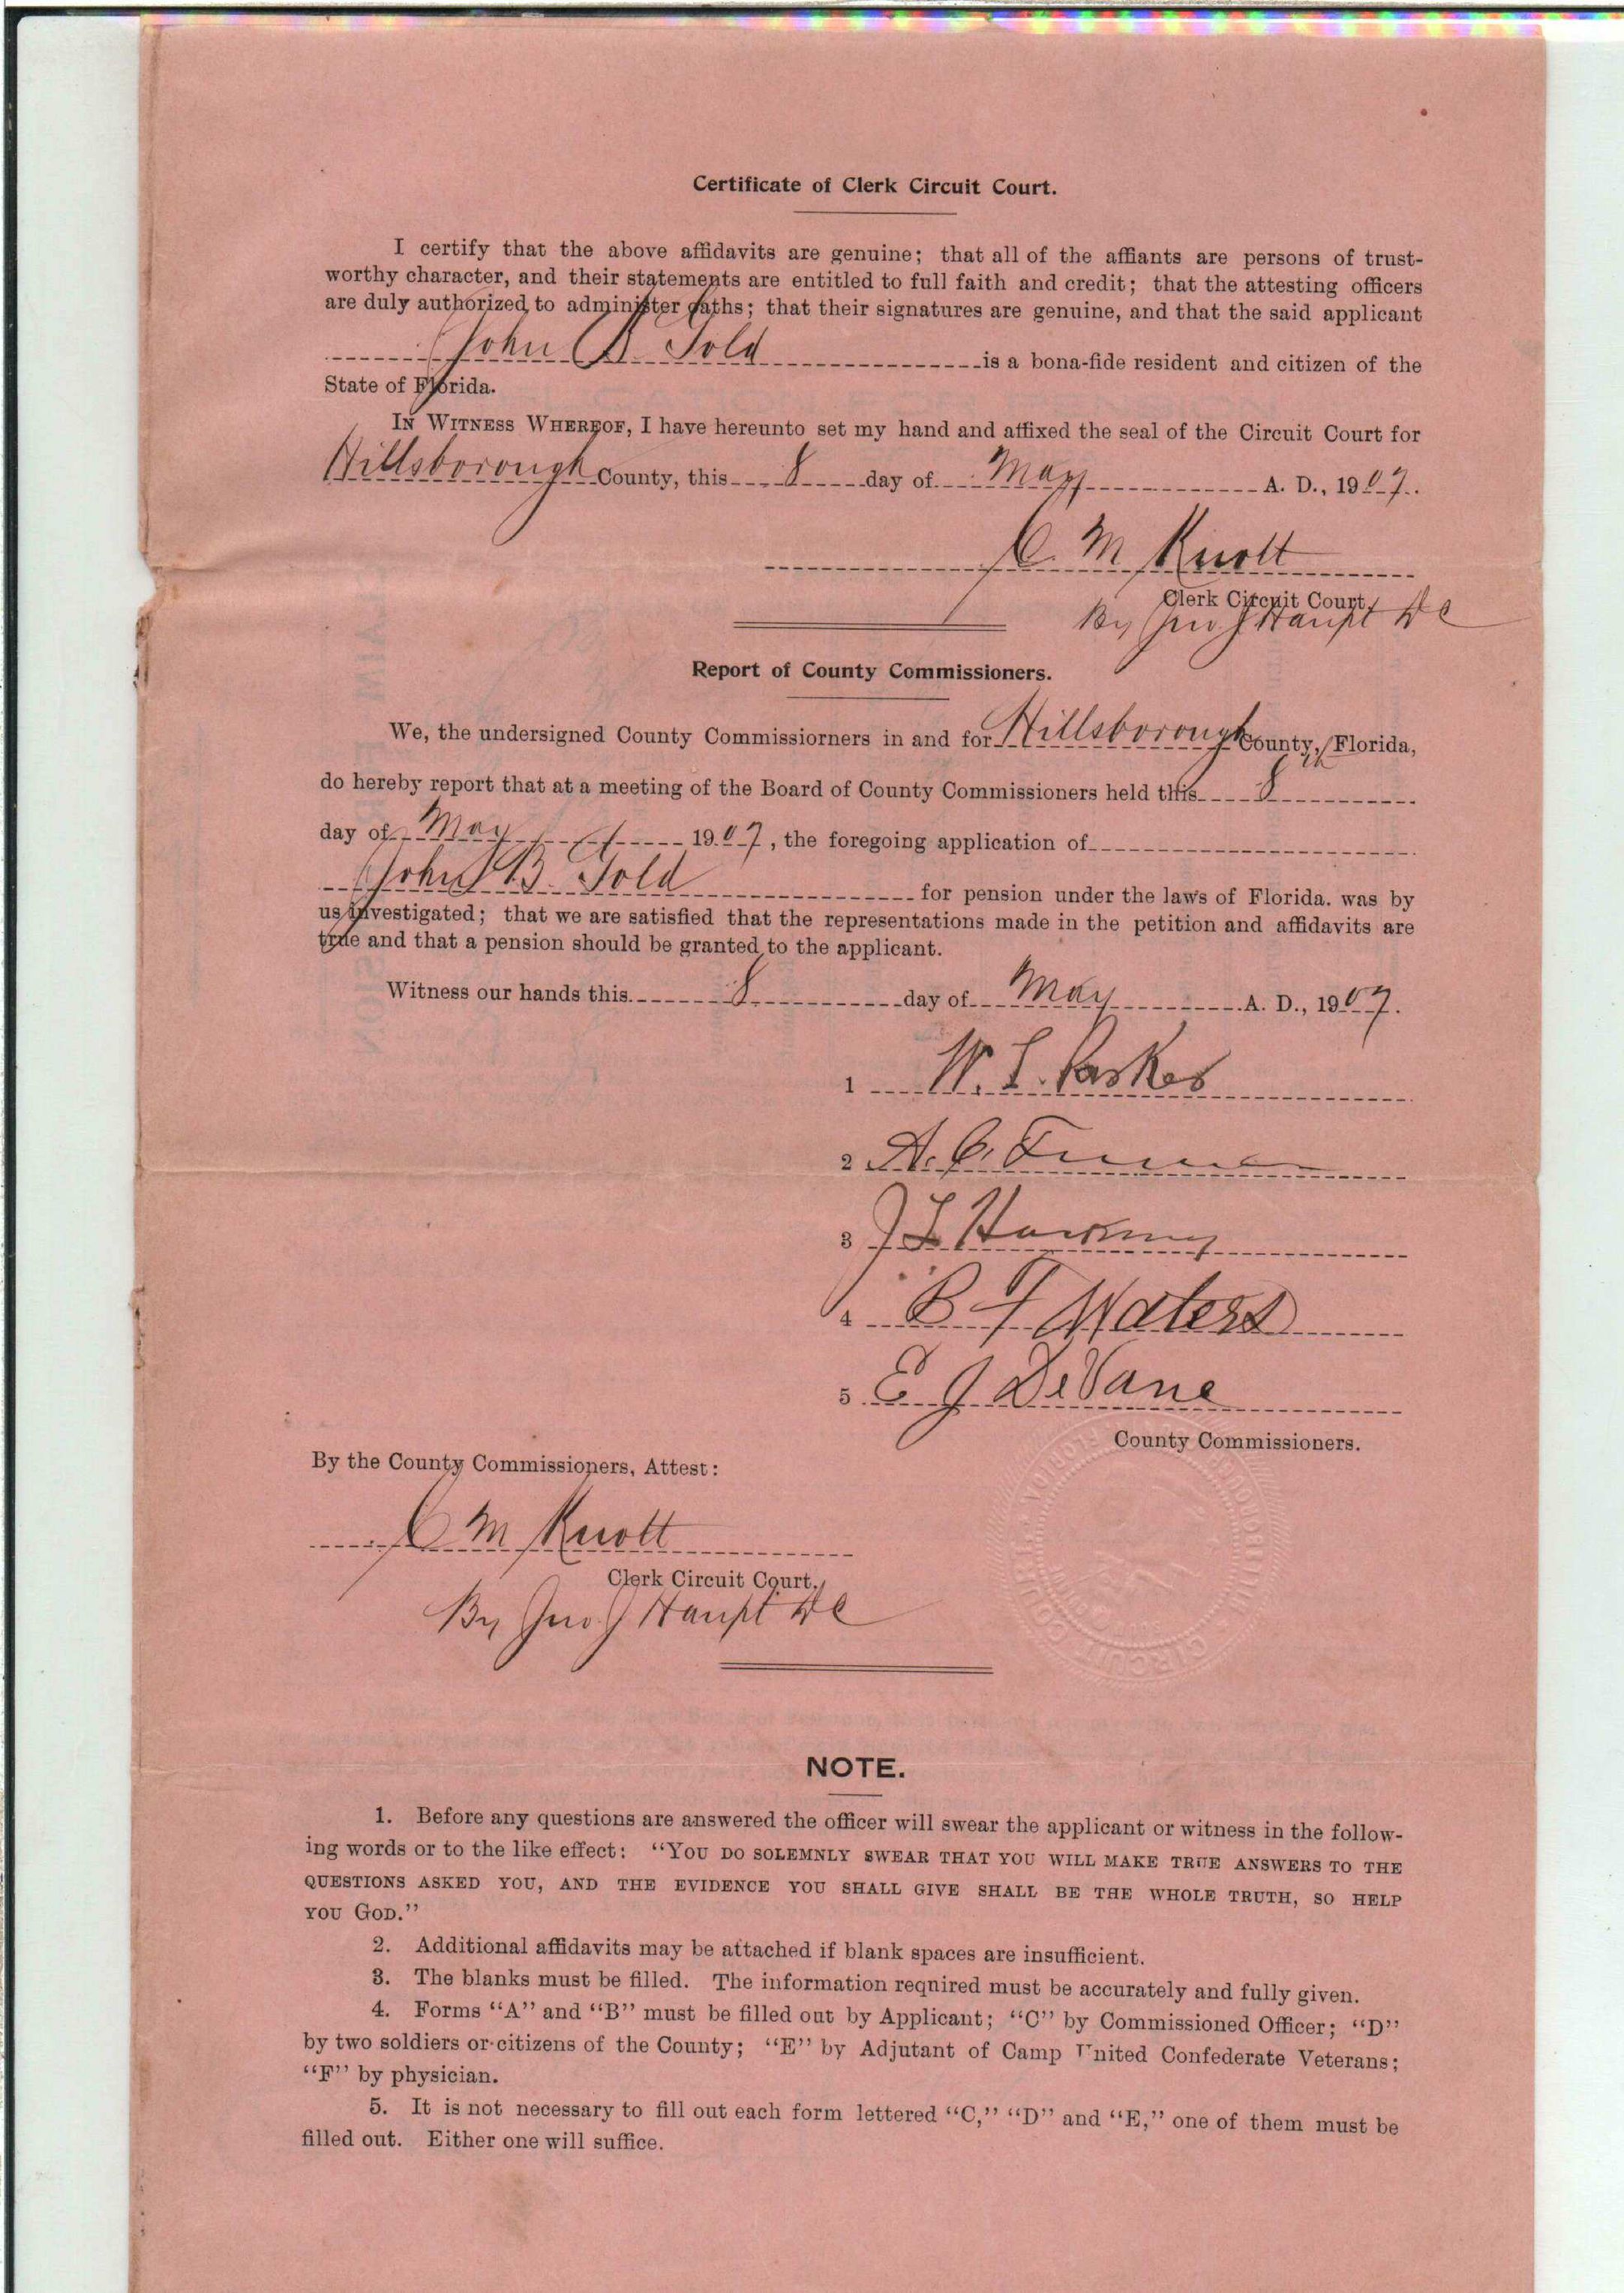 Certificate of Clerk Circuit Court.
I certify that the above affidavits are genuine; that all of the affiants are persons of trust-
worthy character, and their statements are entitled to full faith and credit; that the attesting officers
are duly authorized to administer oaths; that their signatures are genuine, and that the said applicant
John B. Told is a bona-fide resident and citizen of the
State of Florida.
IN WITNESS WHEREOF, I have hereunto set my hand and affixed the seal of the Circuit Court for
Hillsborough County, this 8 day of May A. D., 1907.
C. M. Knott
Clerk Circuit Court.
By Jno J Haupt DC
Report of County Commissioners.
We, the undersigned County Commissiorners in and for Hillsborough County, Florida,
do hereby report that at a meeting of the Board of County Commissioners held this 8th
day of May 1907, the foregoing application of
John B. Told for pension under the laws of Florida. was by
us investigated; that we are satisfied that the representations made in the petition and affidavits are
true and that a pension should be granted to the applicant.
Witness our hands this 8 day of May A. D., 1907.
1 W. L. Parker
2 A. C.
3 J L
4 B F Waters
5 E J DeVane
County Commissioners.
By the County Commissioners, Attest:
C M Knott
Clerk Circuit Court.
By Jno J Haupt DC
CIRCUIT COURT
NOTE.
1. Before any questions are answered the officer will swear the applicant or witness in the follow-
ing words or to the like effect: "YOU DO SOLEMNLY SWEAR THAT YOU WILL MAKE TRUE ANSWERS TO THE
QUESTIONS ASKED YOU, AND THE EVIDENCE YOU SHALL GIVE SHALL BE THE WHOLE TRUTH, SO HELP
YOU GOD."
2. Additional affidavits may be attached if blank spaces are insufficient.
3. The blanks must be filled. The information required must be accurately and fully given.
4. Forms "A" and "B" must be filled out by Applicant; "C" by Commissioned Officer; "D"
by two soldiers or citizens of the County; "E" by Adjutant of Camp United Confederate Veterans;
"F" by physician.
5. It is not necessary to fill out each form lettered "C," "D" and "E," one of them must be
filled out. Either one will suffice.